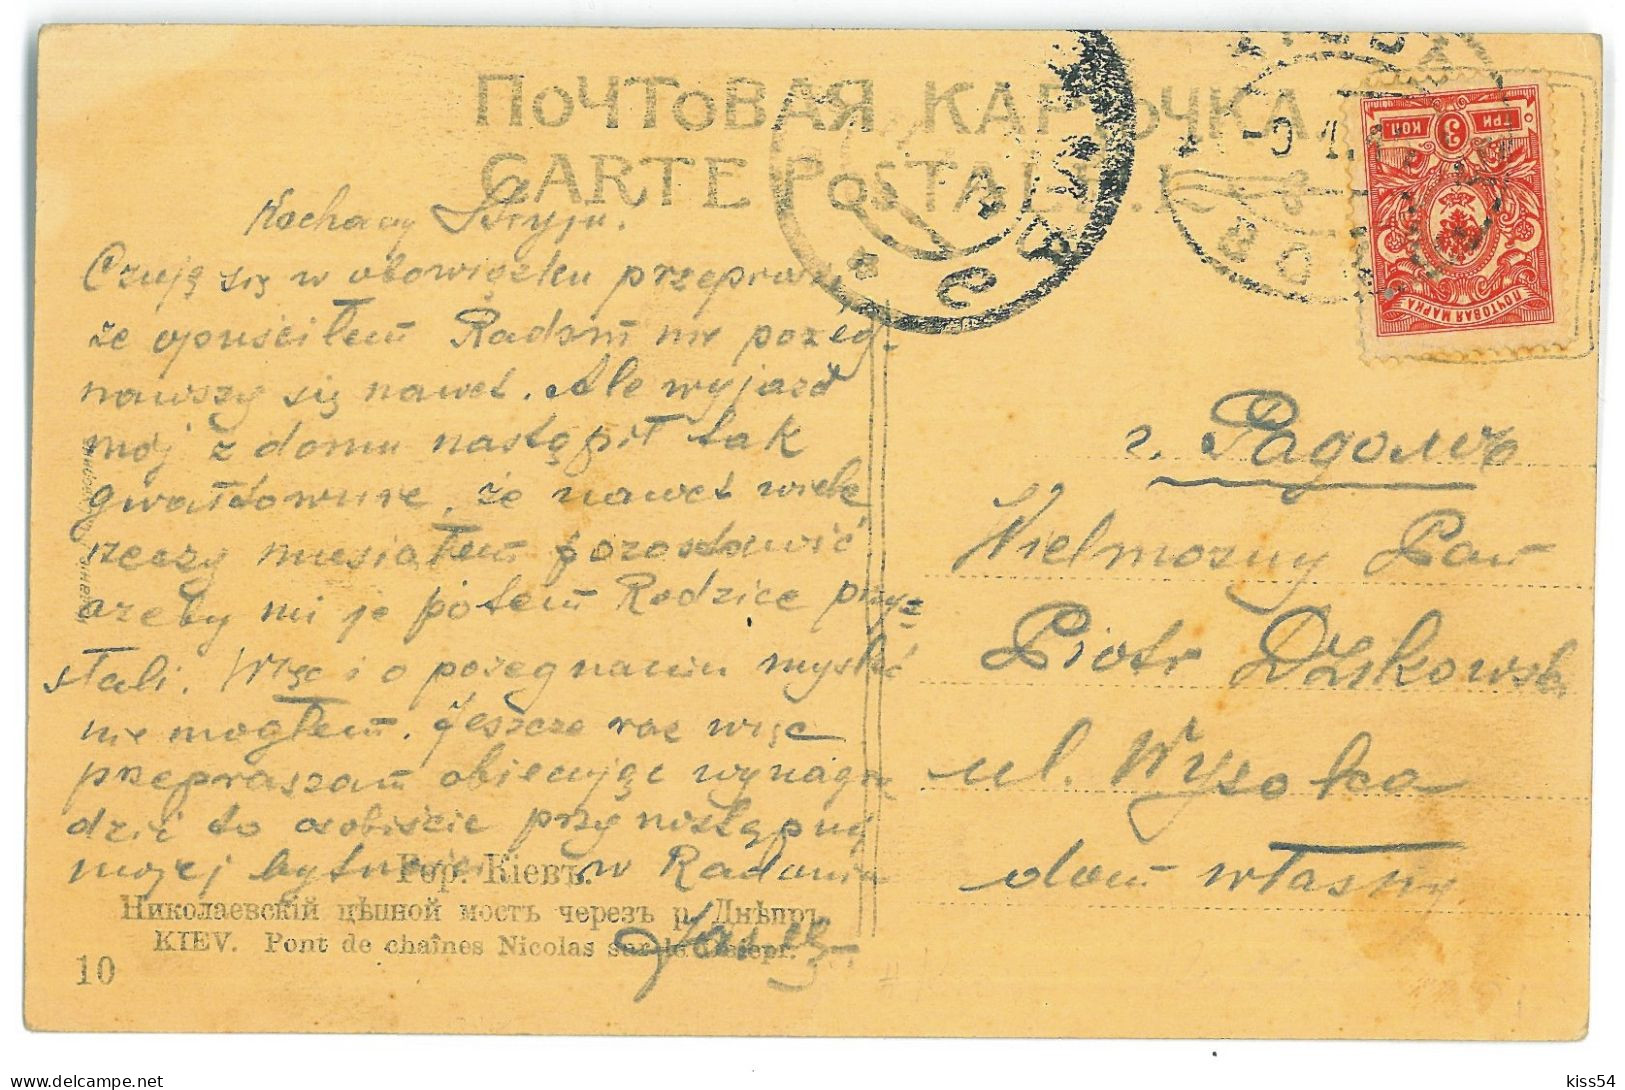 ПОЧТОВАЯ КАРТОЧКА
CARTE POSTALE
Kochany Stryju.
Czuję się w obowiązku przeprosić
że opuściłem Radom nie pożeg-
nawszy się nawet. Ale wyjazd
mój z domu nastąpił tak
gwałtownie, że nawet wiele
rzeczy musiałem pozostawić
ażeby mi je potem Rodzice przy=
słali. Więc i o pożegnaniu myśleć
nie mogłem. Jeszcze raz więc
przepraszam obiecując wynagro
dzić to osobiście przy następnej
mojej bytności w Radomiu
Гор. Кіевъ.
Николаевскій цѣпной мостъ черезъ р. Днѣпръ.
KIEV. Pont de chaînes Nicolas sur le Dniepr.
10
ТРИ 3 КОП
ПОЧТОВАЯ МАРКА
г. Радомъ
Wielmożny Pan
Piotr
ul. Wysoka
dom własny
kiss54